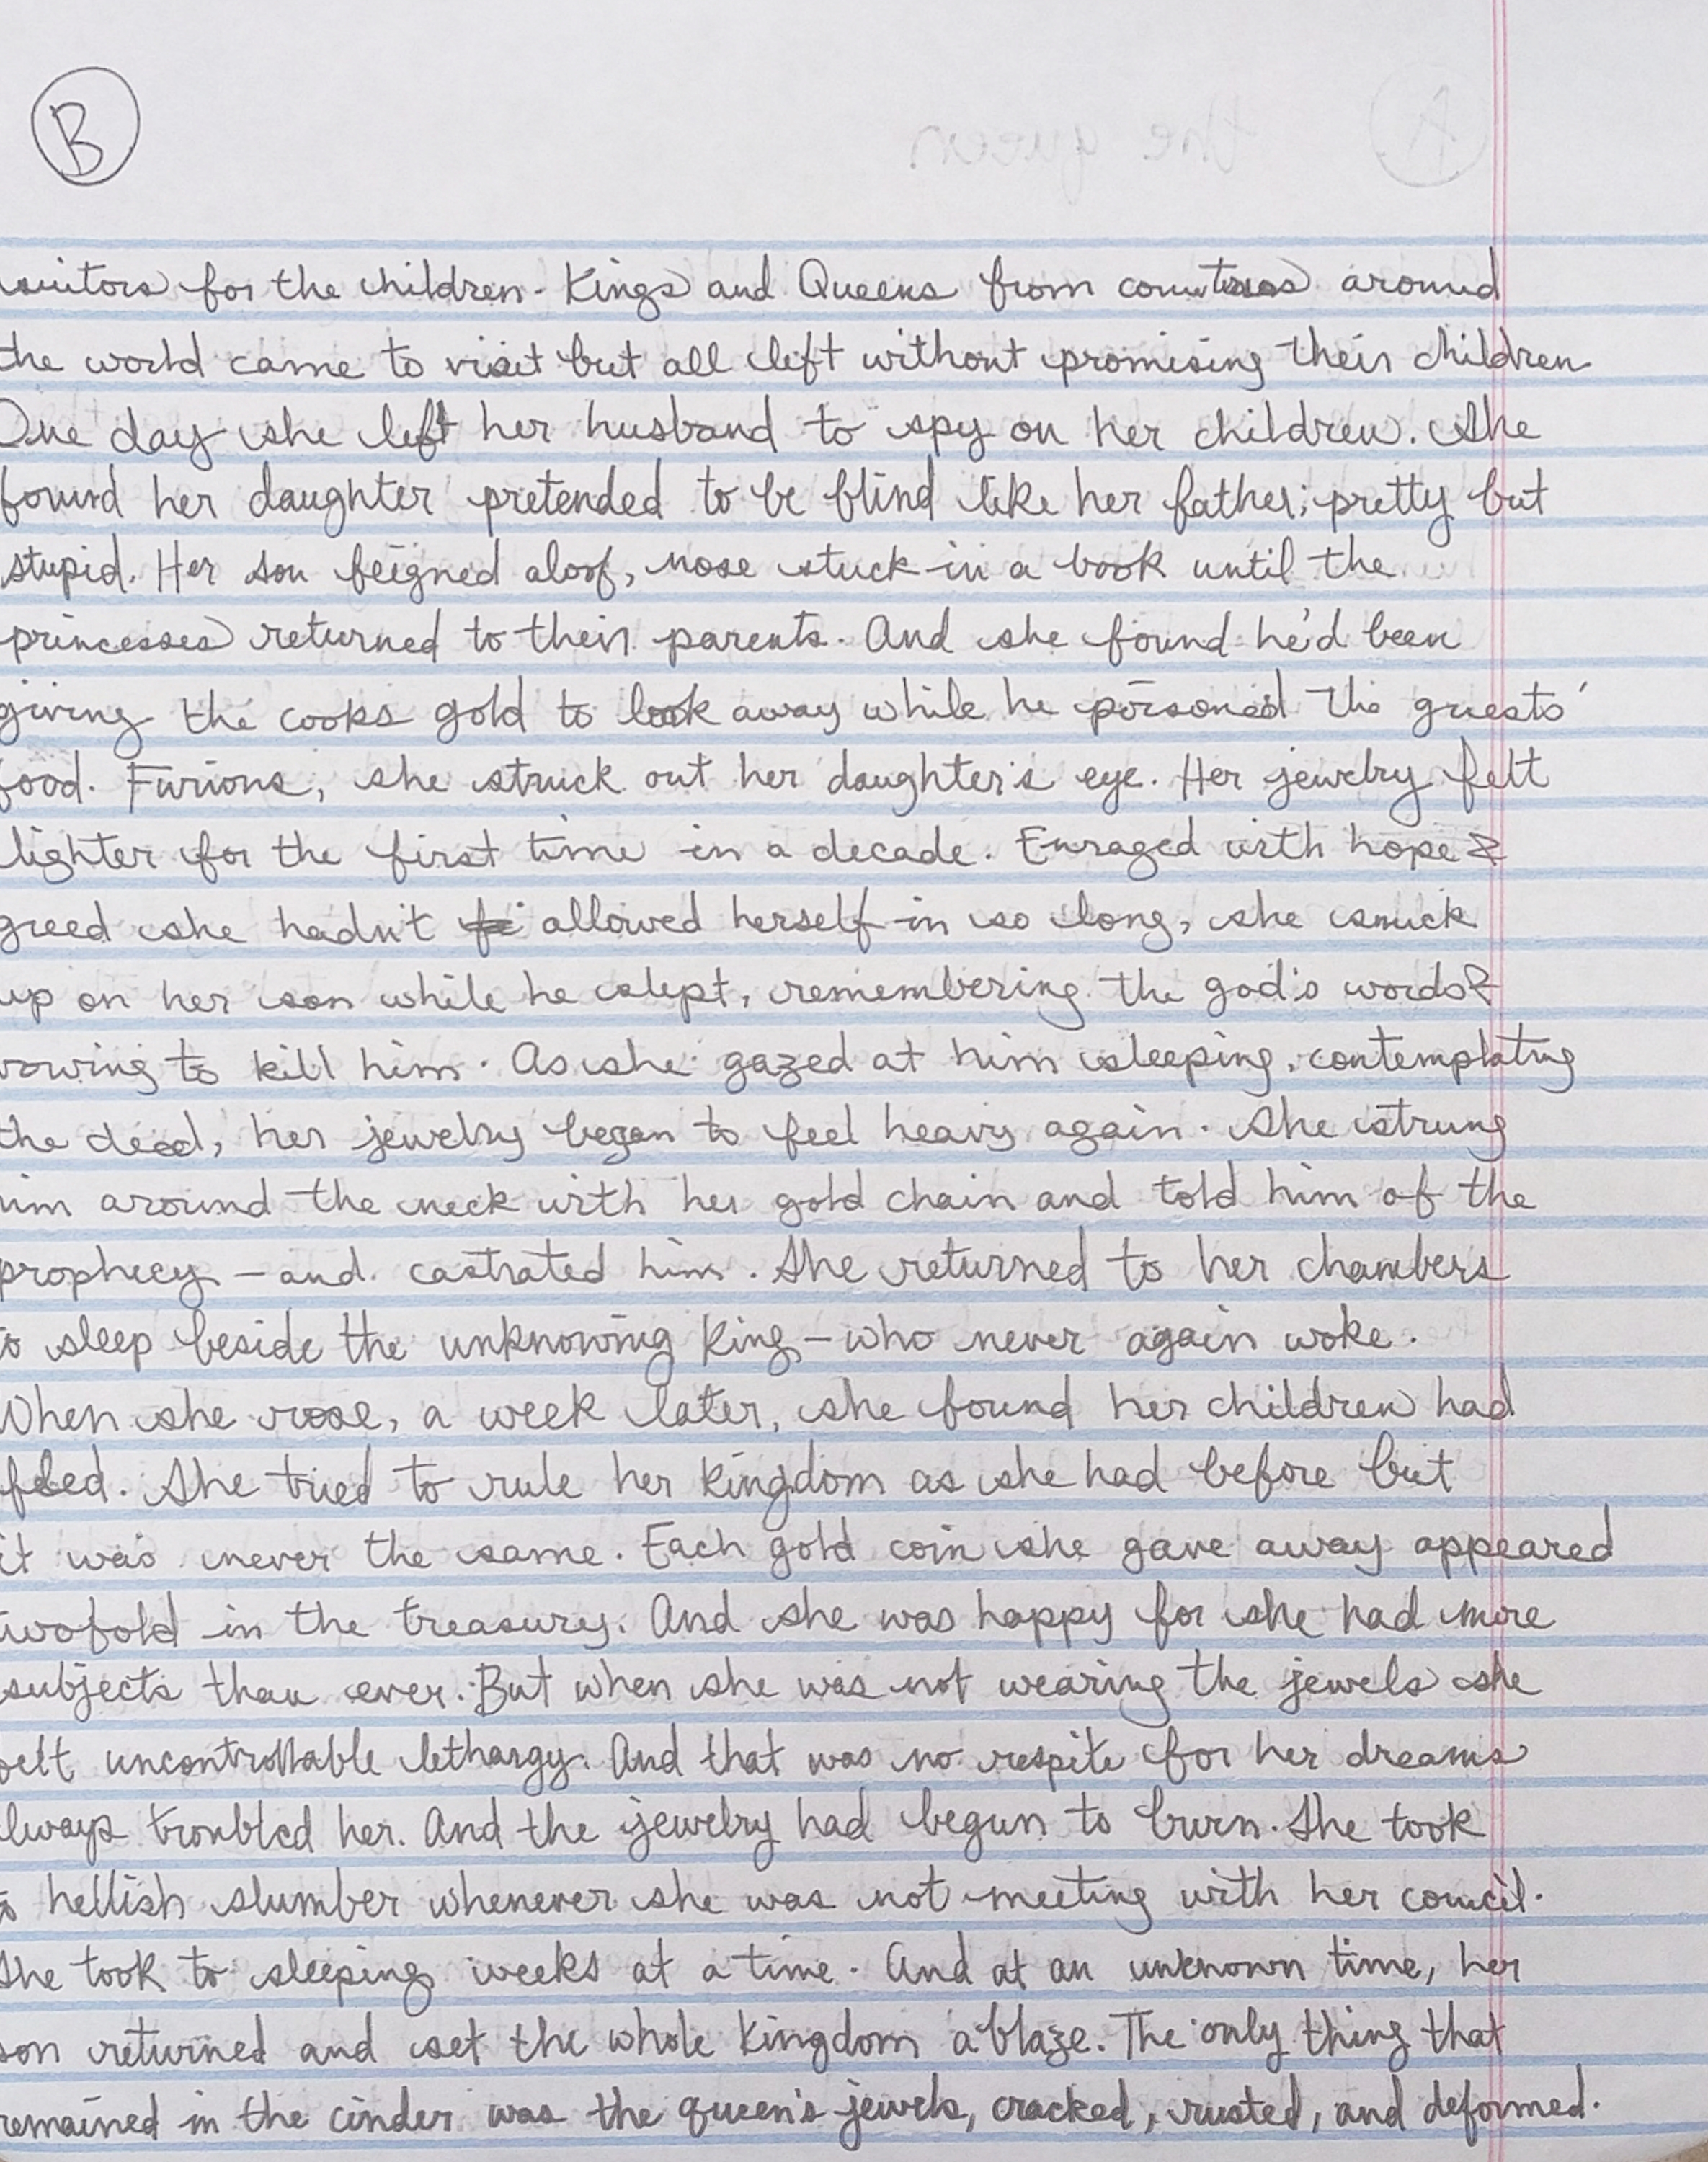 B
suitors for the children. Kings and Queens from countries around
the world came to visit but all left without promising their children
One day she left her husband to spy on her children. She
found her daughter pretended to be blind like her father; pretty but
stupid. Her son feigned aloof, nose stuck in a book until the
princesses returned to their parents. And she found he'd been
giving the cooks gold to look away while he poisoned the guests'
food. Furious, she struck out her daughter's eye. Her jewelry felt
lighter for the first time in a decade. Enraged with hope &
greed she hadn't allowed herself in so long, she snuck
up on her son while he slept, remembering the god's words &
vowing to kill him. As she gazed at him sleeping, contemplating
the deed, her jewelry began to feel heavy again. She strung
him around the neck with her gold chain and told him of the
prophecy - and castrated him. She returned to her chambers
to sleep beside the unknowing King - who never again woke.
When she rose, a week later, she found her children had
fled. She tried to rule her kingdom as she had before but
it was never the same. Each gold coin she gave away appeared
twofold in the treasury. And she was happy for she had more
subjects than ever. But when she was not wearing the jewels she
felt uncontrollable lethargy. And that was no respite for her dreams
always troubled her. And the jewelry had begun to burn. She took
to hellish slumber whenever she was not meeting with her council.
She took to sleeping weeks at a time. And at an unknown time, her
son returned and set the whole kingdom ablaze. The only thing that
remained in the cinder was the queen's jewels, cracked, rusted, and deformed.